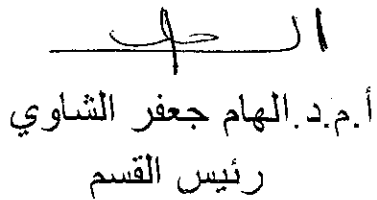 أ.م.د.الهام جعفر الشاوي
رئيس القسم